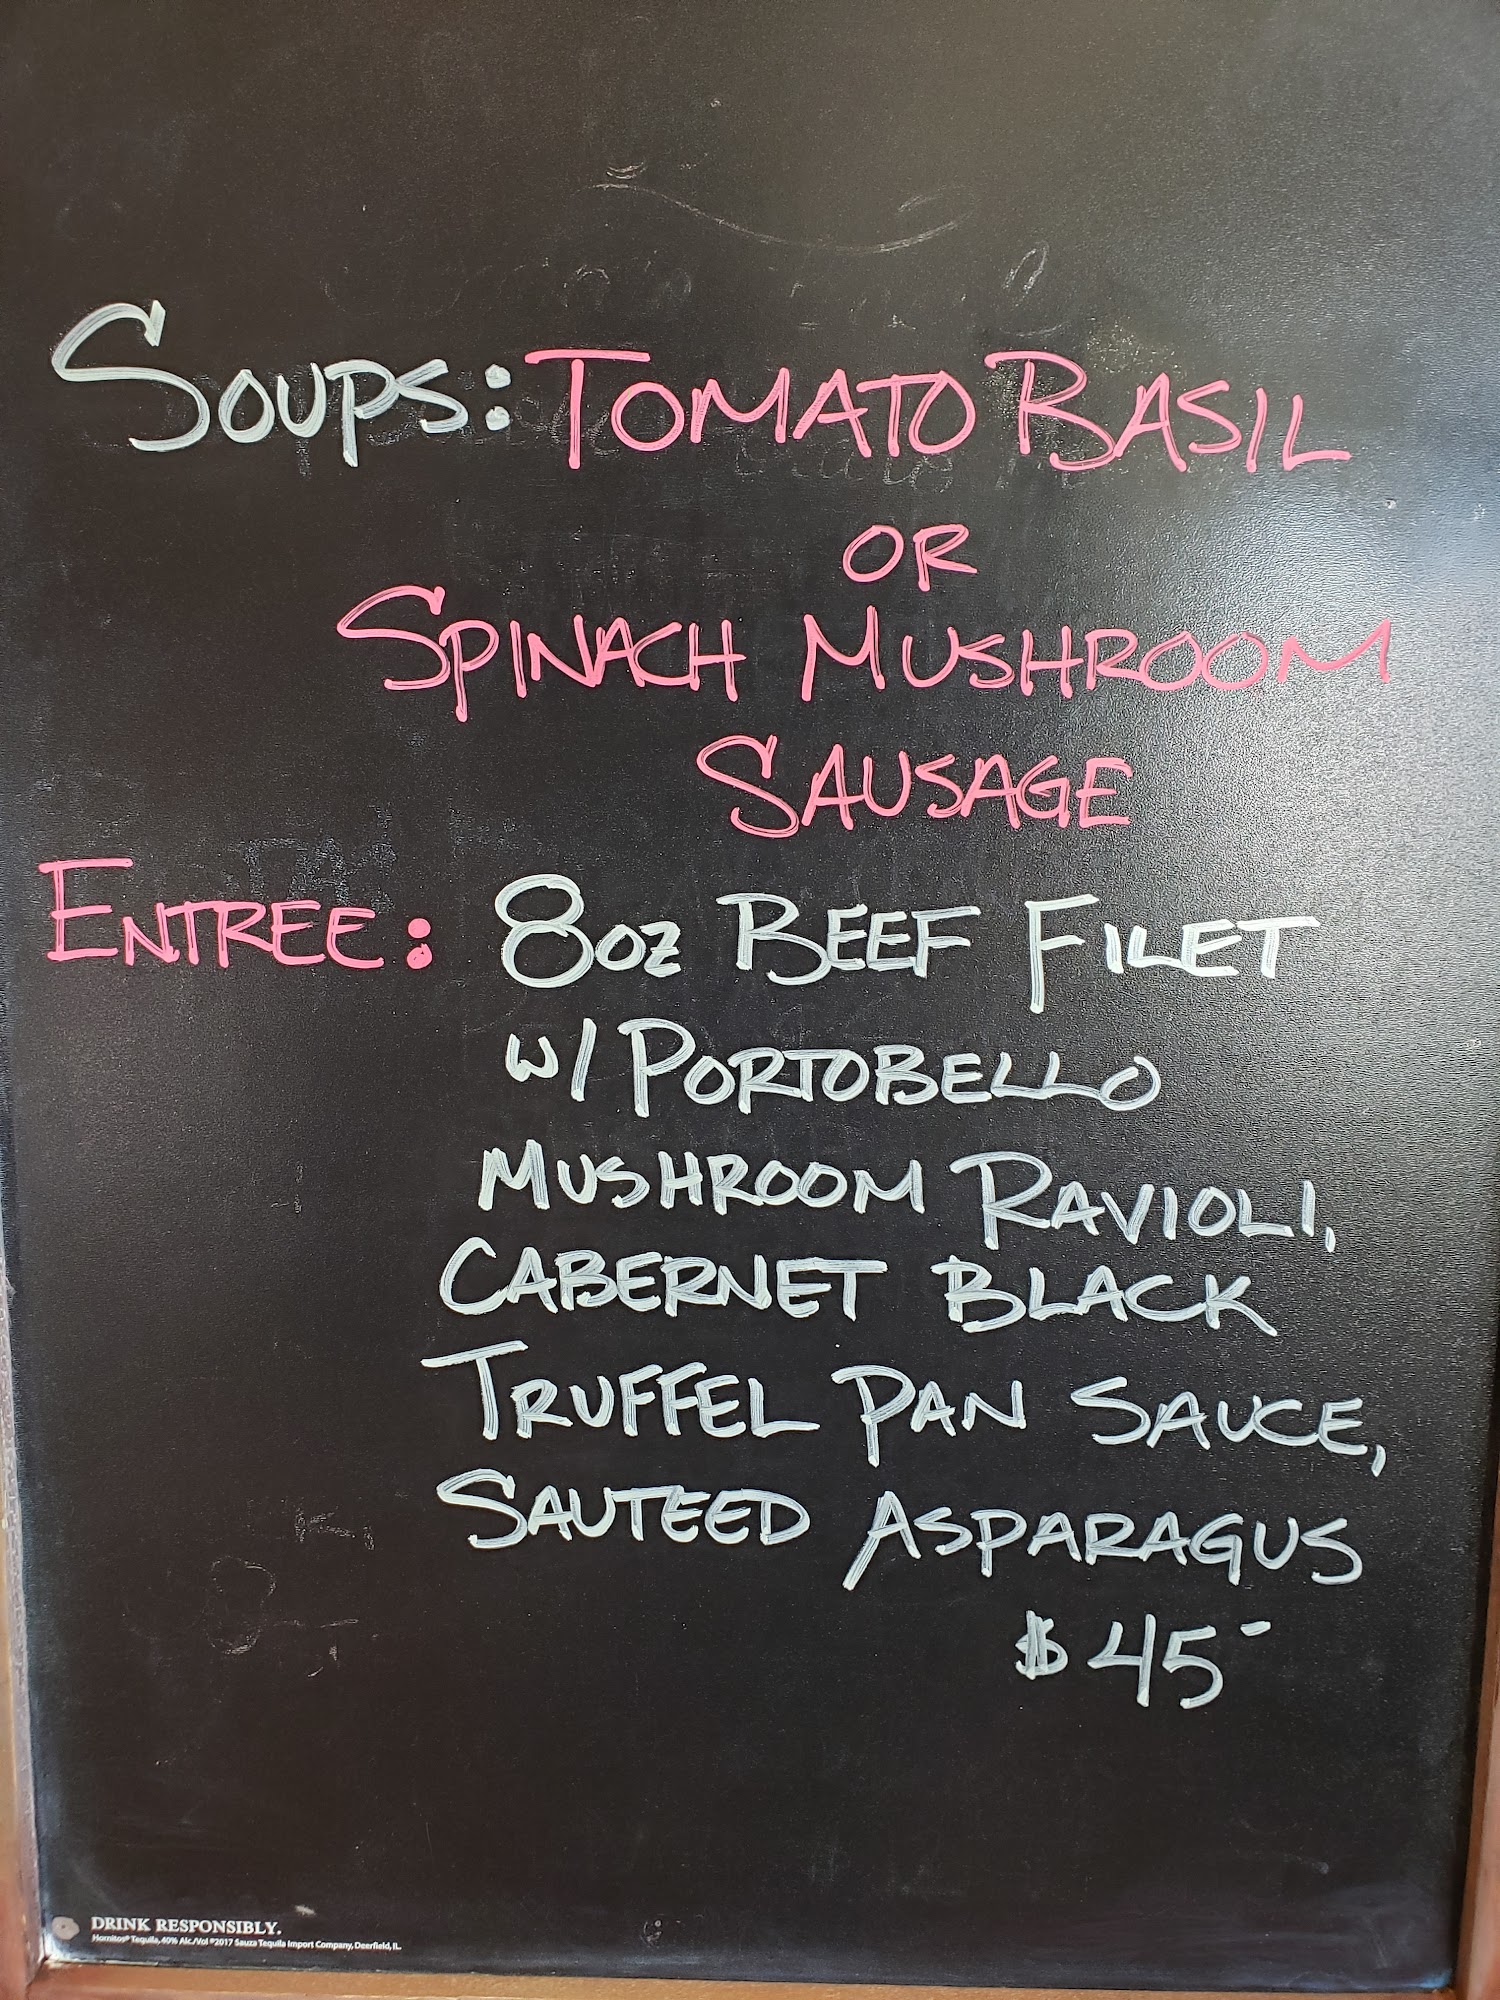 SOUPS: TOMATO BASIL
OR
SPINACH MUSHROOM
SAUSAGE
ENTREE: 8oz BEEF FILET
W/ PORTOBELLO
MUSHROOM RAVIOLI,
CABERNET BLACK
TRUFFEL PAN SAUCE,
SAUTEED ASPARAGUS
$45-
DRINK RESPONSIBLY.
Hornitos® Tequila, 40% Alc./Vol ©2017 Sauza Tequila Import Company, Deerfield, IL.